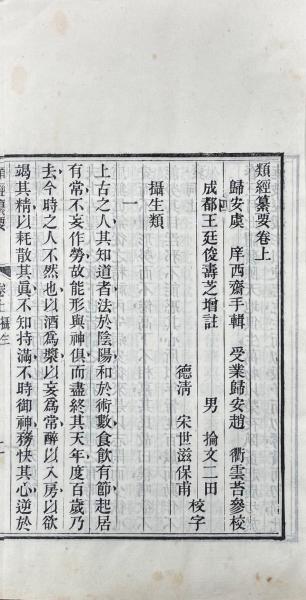 類經纂要卷上
歸安虞 庠西齋手輯 受業歸安趙 衢雲苔參校
成都王廷俊壽芝增註 男 掄文二田
德清 宋世滋保甫 校字
攝生類
一
上古之人其知道者法於陰陽和於術數食飲有節起居
有常不妄作勞故能形與神俱而盡終其天年度百歲乃
去今時之人不然也以酒為漿以妄為常醉以入房以欲
竭其精以耗散其眞不知持滿不時御神務快其心逆於
類經纂要 卷上攝生